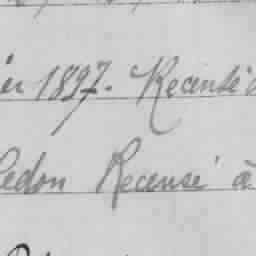 er 1897. Recensé à
edon Recensé à